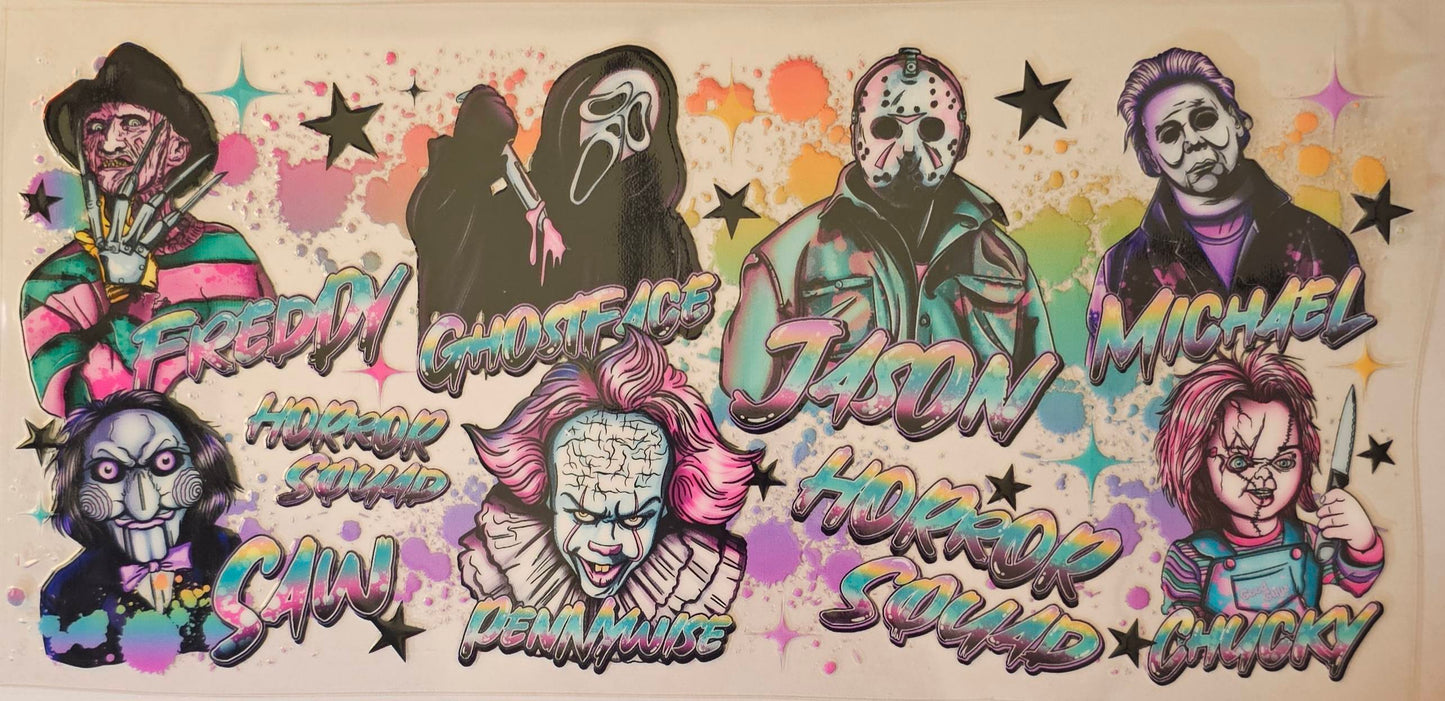 FREDDY
GHOSTFACE
JASON
MICHAEL
HORROR
SQUAD
SAW
PENNYWISE
HORROR
SQUAD
CHUCKY